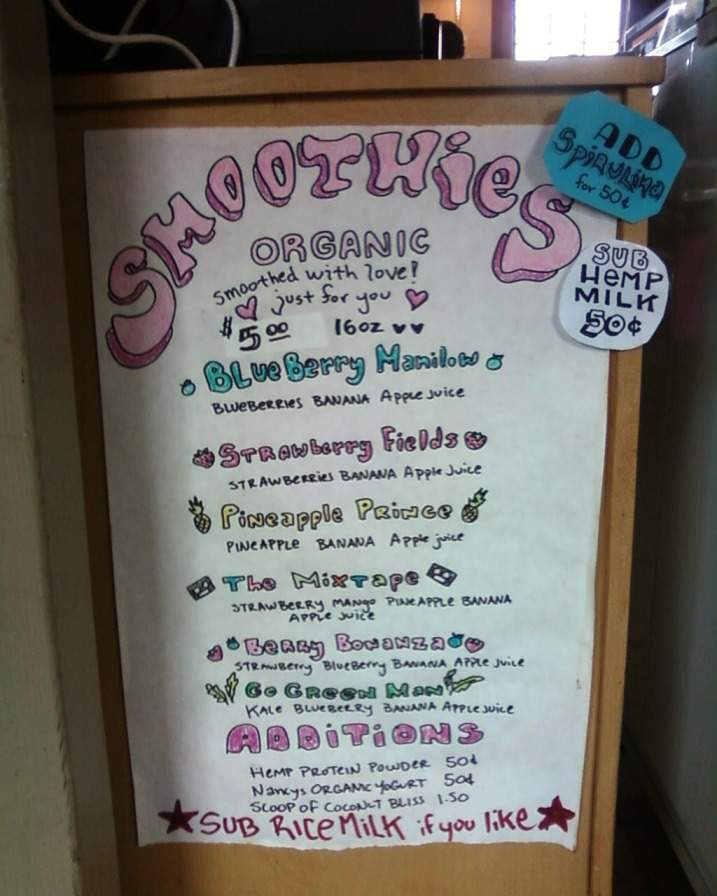 SMOOTHiES
ORGANIC
smoothed with love!
just for you
$5.00 16oz
BLUEBerry Manilow
BLUEBERRIES BANANA Apple Juice
STRAWberry Fields
STRAWBerries BANANA Apple Juice
Pineapple Prince
PINEAPPLE BANANA Apple juice
The Mixtape
STRAWBERRY MANgo PINEAPPLE BANANA
APPLE JuicE
Berry Bonanza
STRAWBerry BlueBerry BANANA APPLE JuicE
Go Green Man
KALE BLUEBERRY BANANA APPLE juicE
ADDiTiONS
HEMP PROTEIN POWDER 50¢
Nancys ORGANIC YOGURT 50¢
SCOOP OF COCONUT BLISS 1.50
SUB RICE MiLK if you like
ADD
Spirulina
for 50¢
SUB
HEMP
MILK
50¢